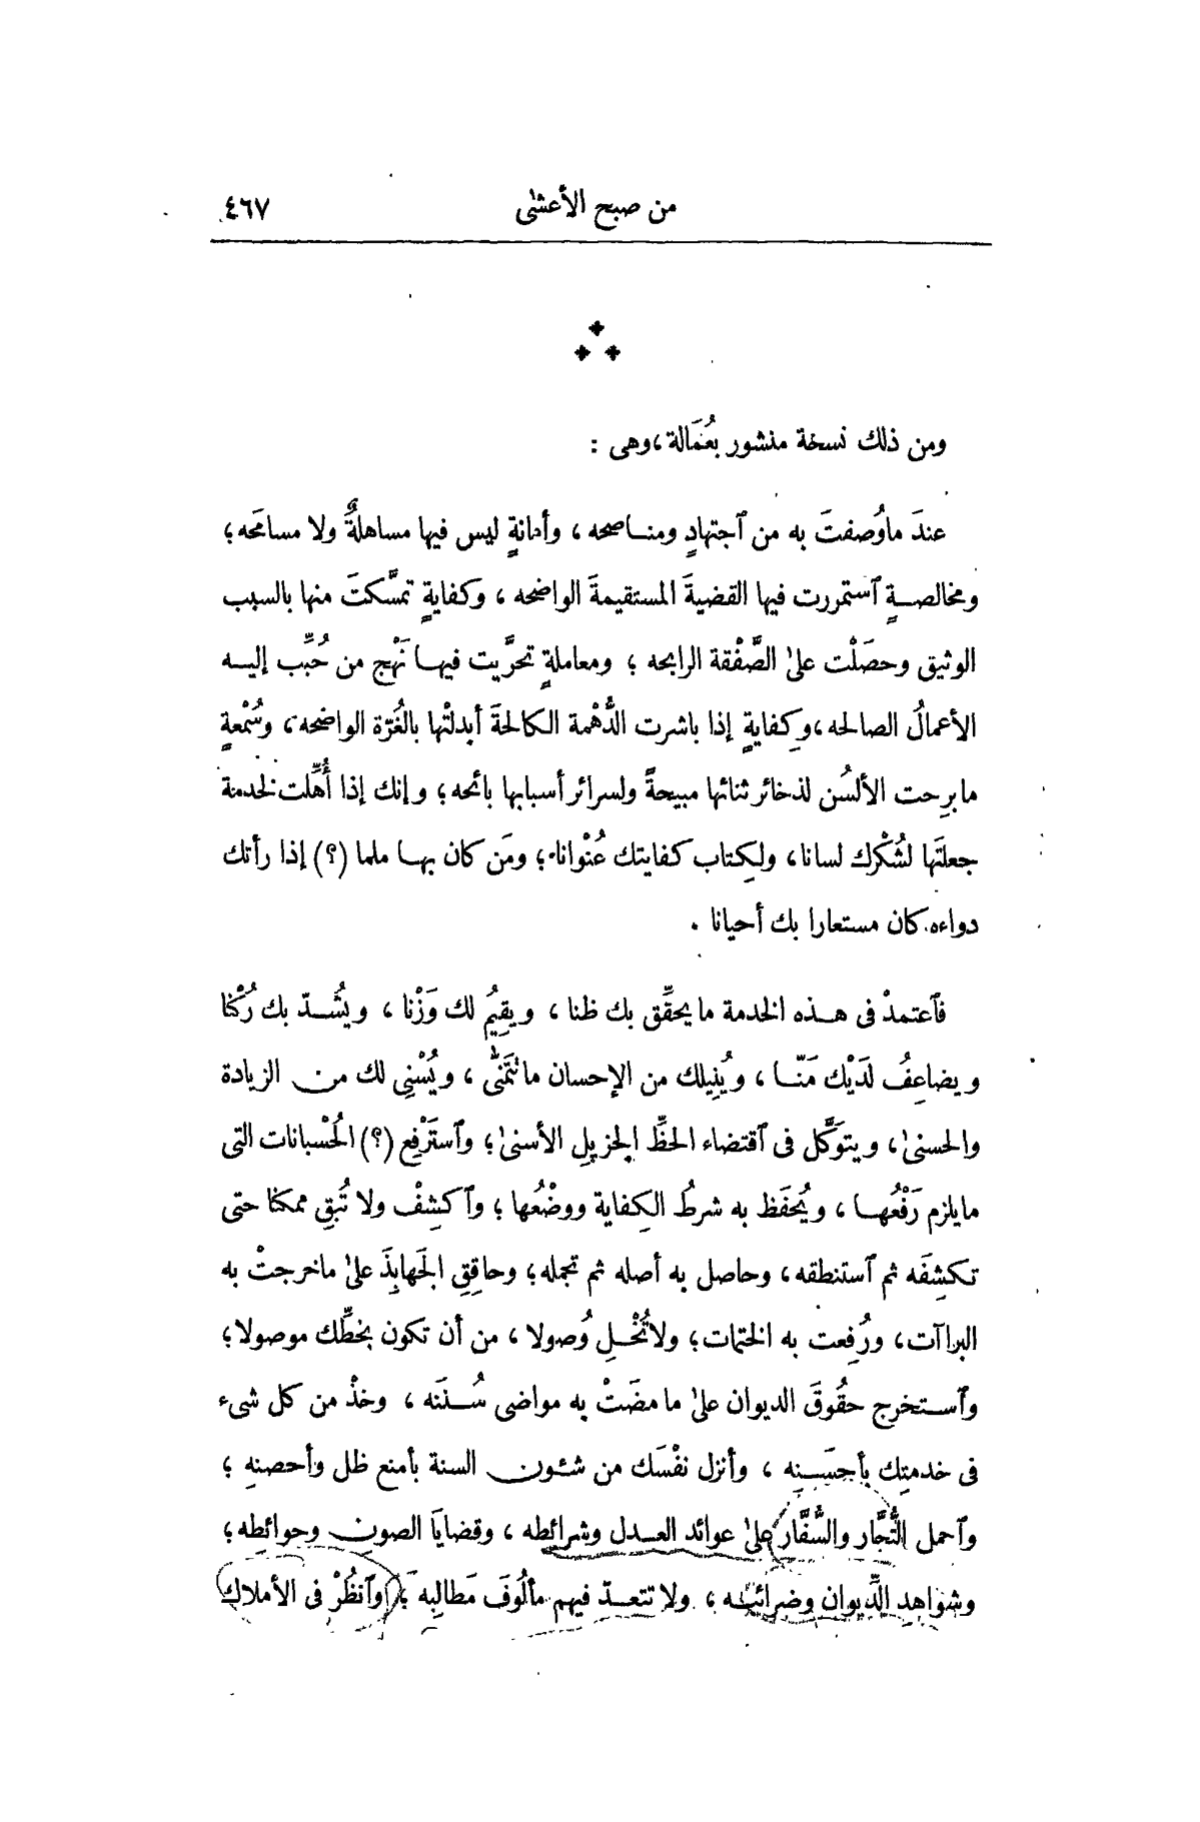 من صبح الأعشىٰ ٤٦٧
ومن ذلك نسخة منشور بعُمَالة، وهى :
عندَ ماوُصفتَ به من ٱجتهادٍ ومناصحه ، وأمانةٍ ليس فيها مساهلةٌ ولا مسامَحه ؛
ومخالصةٍ ٱستمررت فيها القضيةَ المستقيمةَ الواضحه ، وكفايةٍ تمسَّكتَ منها بالسبب
الوثيق وحصَلْت علىٰ الصَّفْقة الرابحه ؛ ومعاملةٍ تحرَّيت فيها نَهْج من حُبِّب إليه
الأعمالُ الصالحه، وكِفايةٍ إذا باشرت الدُّهْمة الكالحةَ أبدلتْها بالغُرّة الواضحه، وسُمْعةٍ
مابرِحت الألسُن لذخائر ثنائها مبيحةً ولسرائر أسبابها بائحه ؛ وإنك إذا أُهِّلت لخدمة
جعلتَها لشُكْرك لسانا، ولِكتاب كفايتك عُنْوانا ؛ ومَن كان بها ملما (؟) إذا رأتك
دواءه كان مستعارا بك أحيانا .
فٱعتمدْ فى هذه الخدمة مايحقِّق بك ظنا ، ويقِيمُ لك وَزْنا ، ويشُدّ بك رُكْنا
ويضاعِفُ لدَيْك مَنّا ، ويُنِيلك من الإحسان ماتتمَنّٰى ، ويُسْنِى لك من الزيادة
والحسنىٰ، ويتوَكَّل فى ٱقتضاء الحظِّ الجزيلِ الأسنىٰ؛ وٱسترْفِع (؟) الحُسْبانات التى
مايلزم رَفْعُها ، ويُحفَظ به شرطُ الكِفاية ووضْعُها ؛ وٱكشِفْ ولا تُبقِ ممكنا حتى
تكشِفَه ثم ٱستنطقه، وحاصل به أصله ثم تجمله؛ وحاقِقِ الجَهابِذَ علىٰ ماخرجتْ به
البراآت، ورُفِعت به الختمات؛ ولاتُخْلِ وُصولا ، من أن تكون بخطِّك موصولا؛
وٱستخرج حقُوقَ الديوان علىٰ ما مضَتْ به مواضى سُنَنه ، وخذْ من كل شىء
فى خدمتِك بأحسَنِه ، وأنزل نفْسَك من شئون السنة بأمنع ظل وأحصنِه ؛
وٱحمل التُّجَّار والسُّفَّار علىٰ عوائد العدل وشرائطه ، وقضايَا الصونِ وحوائطِه ؛
وشواهِد الدِّيوان وضرائبه ، ولا تتعدّ فيهم مألُوفَ مَطالبِه ؛ وٱنظُرْ فى الأملاك